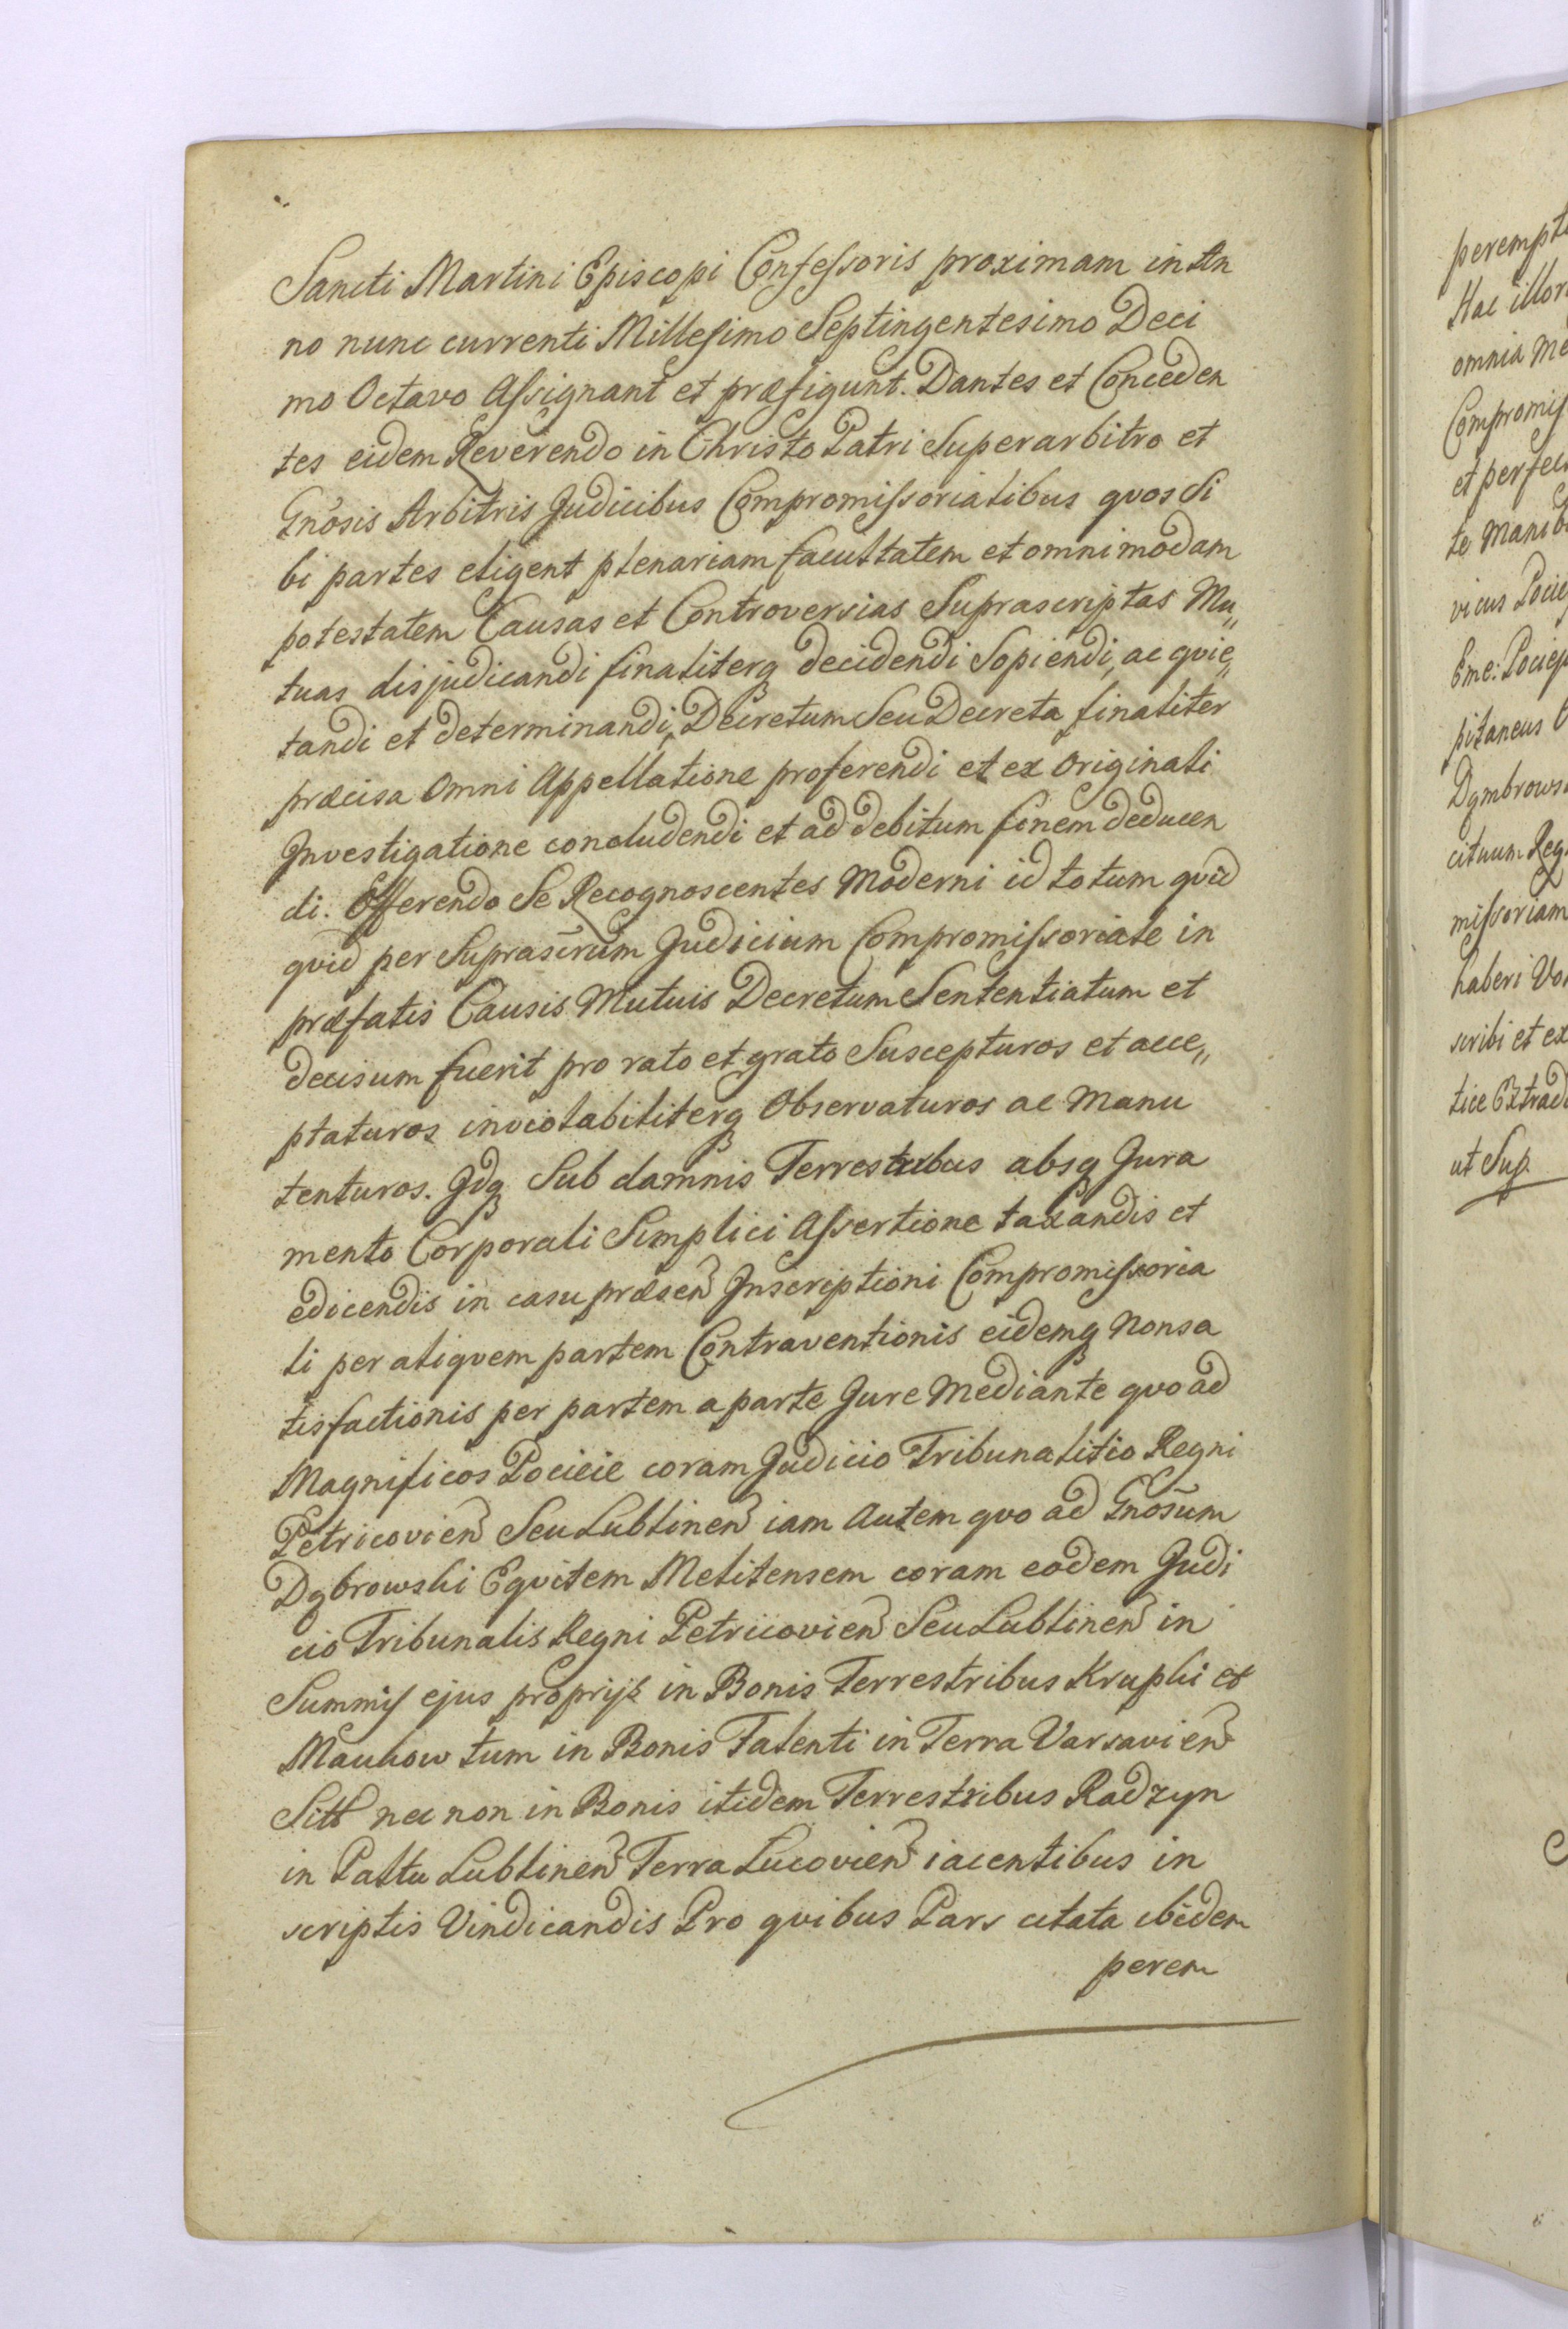 Sancti Martini Episcopi Confessoris proximam in An
no nunc currenti Millesimo Septingentesimo Deci
mo Octavo Assignant et præfigunt. Dantes et Conceden
tes eidem Reverendo in Christo Patri Superarbitro et
Gnosis Arbitris Judicibus Compromissorialibus qvos Si
bi partes eligent plenariam facultatem et omnimodam
potestatem Causas et Controversias Suprascriptas Mu„
tuas disjudicandi finaliterq decidendi Sopiendi, ac qvie„
tandi et determinandi, Decretum Seu Decreta finaliter
præcisa Omni Appellatione proferendi et ex Originali
Investigatione concludendi et ad debitum finem deducen
di. Offerendo Se Recognoscentes Moderni id totum qvid
qvid per Suprascrum Judicium Compromissoriale in
præfatis Causis Mutuis Decretum Sententiatum et
decisum fuerit pro rato et grato Suscepturos et acce„
ptaturos inviolabiliterq Observaturos ac Manu
tenturos. Idq Sub damnis Terrestribus absq Jura
mento Corporali Simplici Assertione taxandis et
edicendis in casu præsen Inscriptioni Compromissoria
li per aliqvem partem Contraventionis eidemq Nonsa
tisfactionis per partem a parte Jure Mediante qvo ad
Magnificos Pocieie coram Judicio Tribunalitio Regni
Petricovien Seu Lublinen iam Autem qvo ad Gnosum
Dąbrowski Eqvitem Melitensem coram eodem Judi
cio Tribunalis Regni Petricovien Seu Lublinen in
Summis ejus proprijs in Bonis Terrestribus Krupki et
Maukow tum in Bonis Falenti in Terra Varsavien
Sitt nec non in Bonis itidem Terrestribus Radzyn
in Pallu Lublinen Terra Lucovien iacentibus in
scriptis Vindicandis Pro qvibus Pars citata ibidem
perem
perempt
Hac illor
omnia Me
Compromis
et perfec
te Manib
vicus Pocie
Eme: Pociep
pitaneus
Dąmbrows
cituum Reg
missoriam
haberi Vo
scribi et ex
tice Extrad
ut Sup.